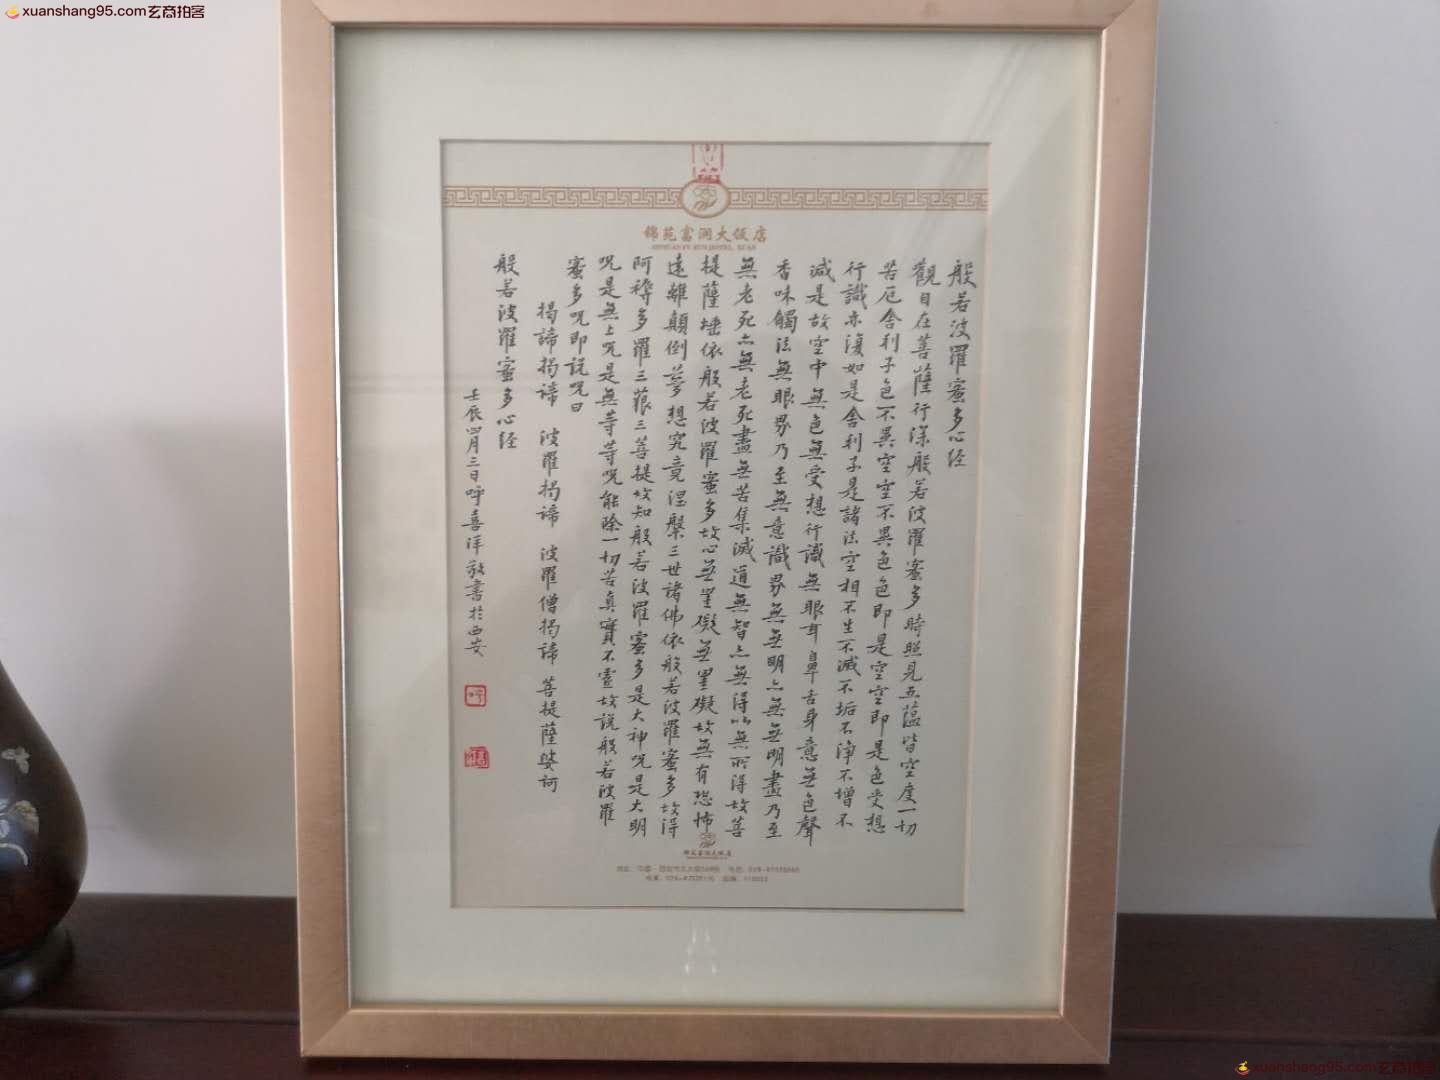 xuanshang95.com玄商拍客
錦苑富潤大飯店
般若波羅蜜多心经
觀自在菩薩行深般若波羅蜜多時照見五蕴皆空度一切
苦厄舍利子色不異空空不異色色即是空空即是色受想
行識亦復如是舍利子是諸法空相不生不滅不垢不淨不增不
減是故空中無色無受想行識無眼耳鼻舌身意無色聲
香味觸法無眼界乃至無意識界無無明亦無無明盡乃至
無老死亦無老死盡無苦集滅道無智亦無得以無所得故菩
提薩埵依般若波羅蜜多故心無罣礙無罣礙故無有恐怖
遠離顛倒夢想究竟涅槃三世諸佛依般若波羅蜜多故得
阿耨多羅三藐三菩提故知般若波羅蜜多是大神咒是大明
咒是無上咒是無等等咒能除一切苦真實不虛故説般若波羅
蜜多咒即説咒曰
揭諦揭諦 波羅揭諦 波羅僧揭諦 菩提薩婆訶
般若波羅蜜多心经
壬辰四月三日呼喜洋敬書於西安
呼
錦苑富潤大飯店
xuanshang95.com玄商拍客